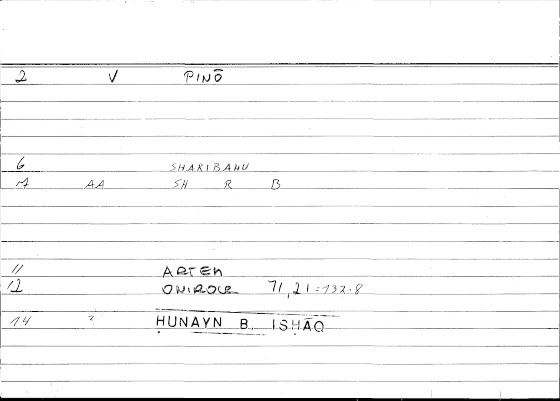 2 V PINŌ
6 SHARIBAHU
M AA SH R B
11 ARTEM
12 ONIROCR 71,21=132.8
14 ? ḤUNAYN B. ISḤĀQ